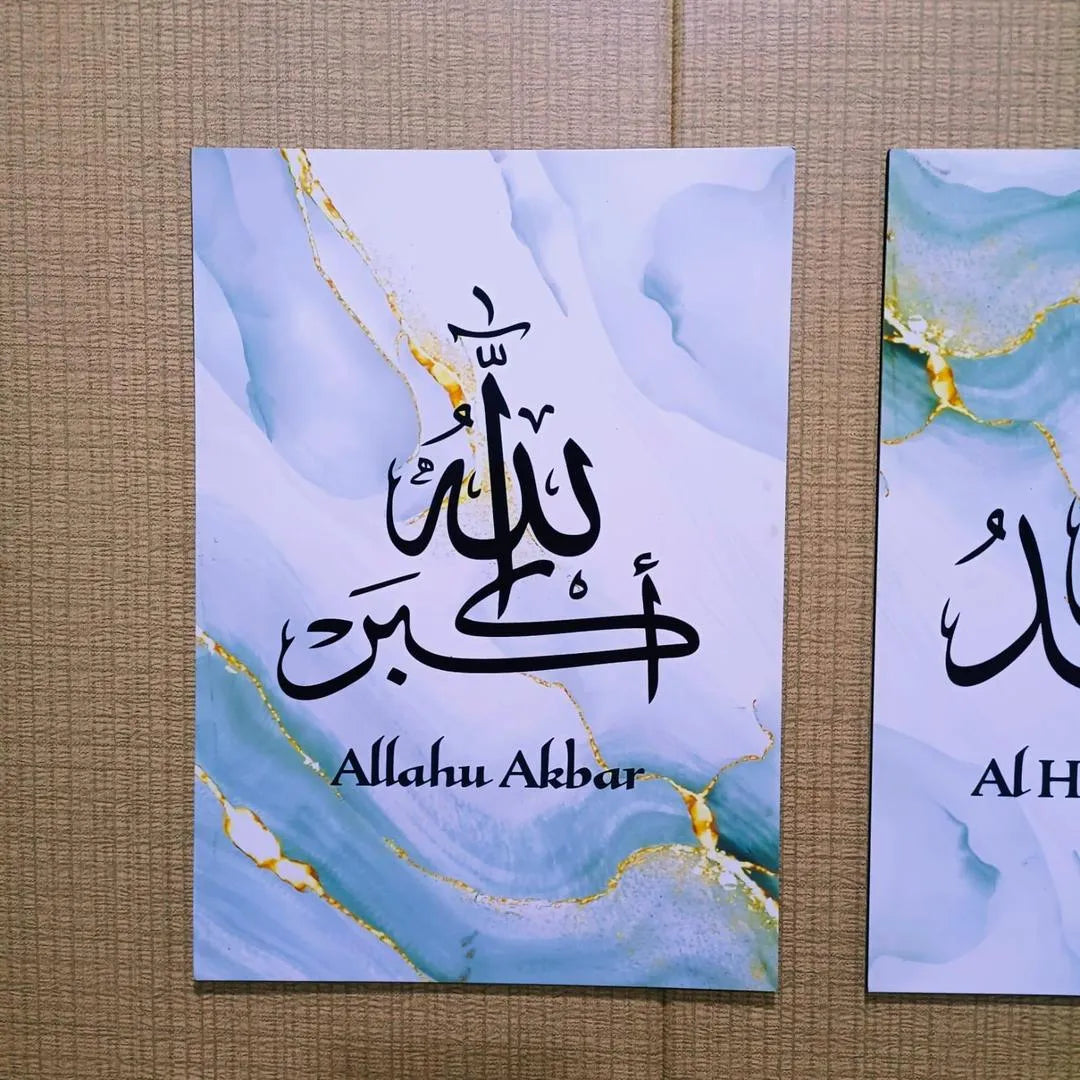 الله
أكبر
Allahu Akbar
Al H